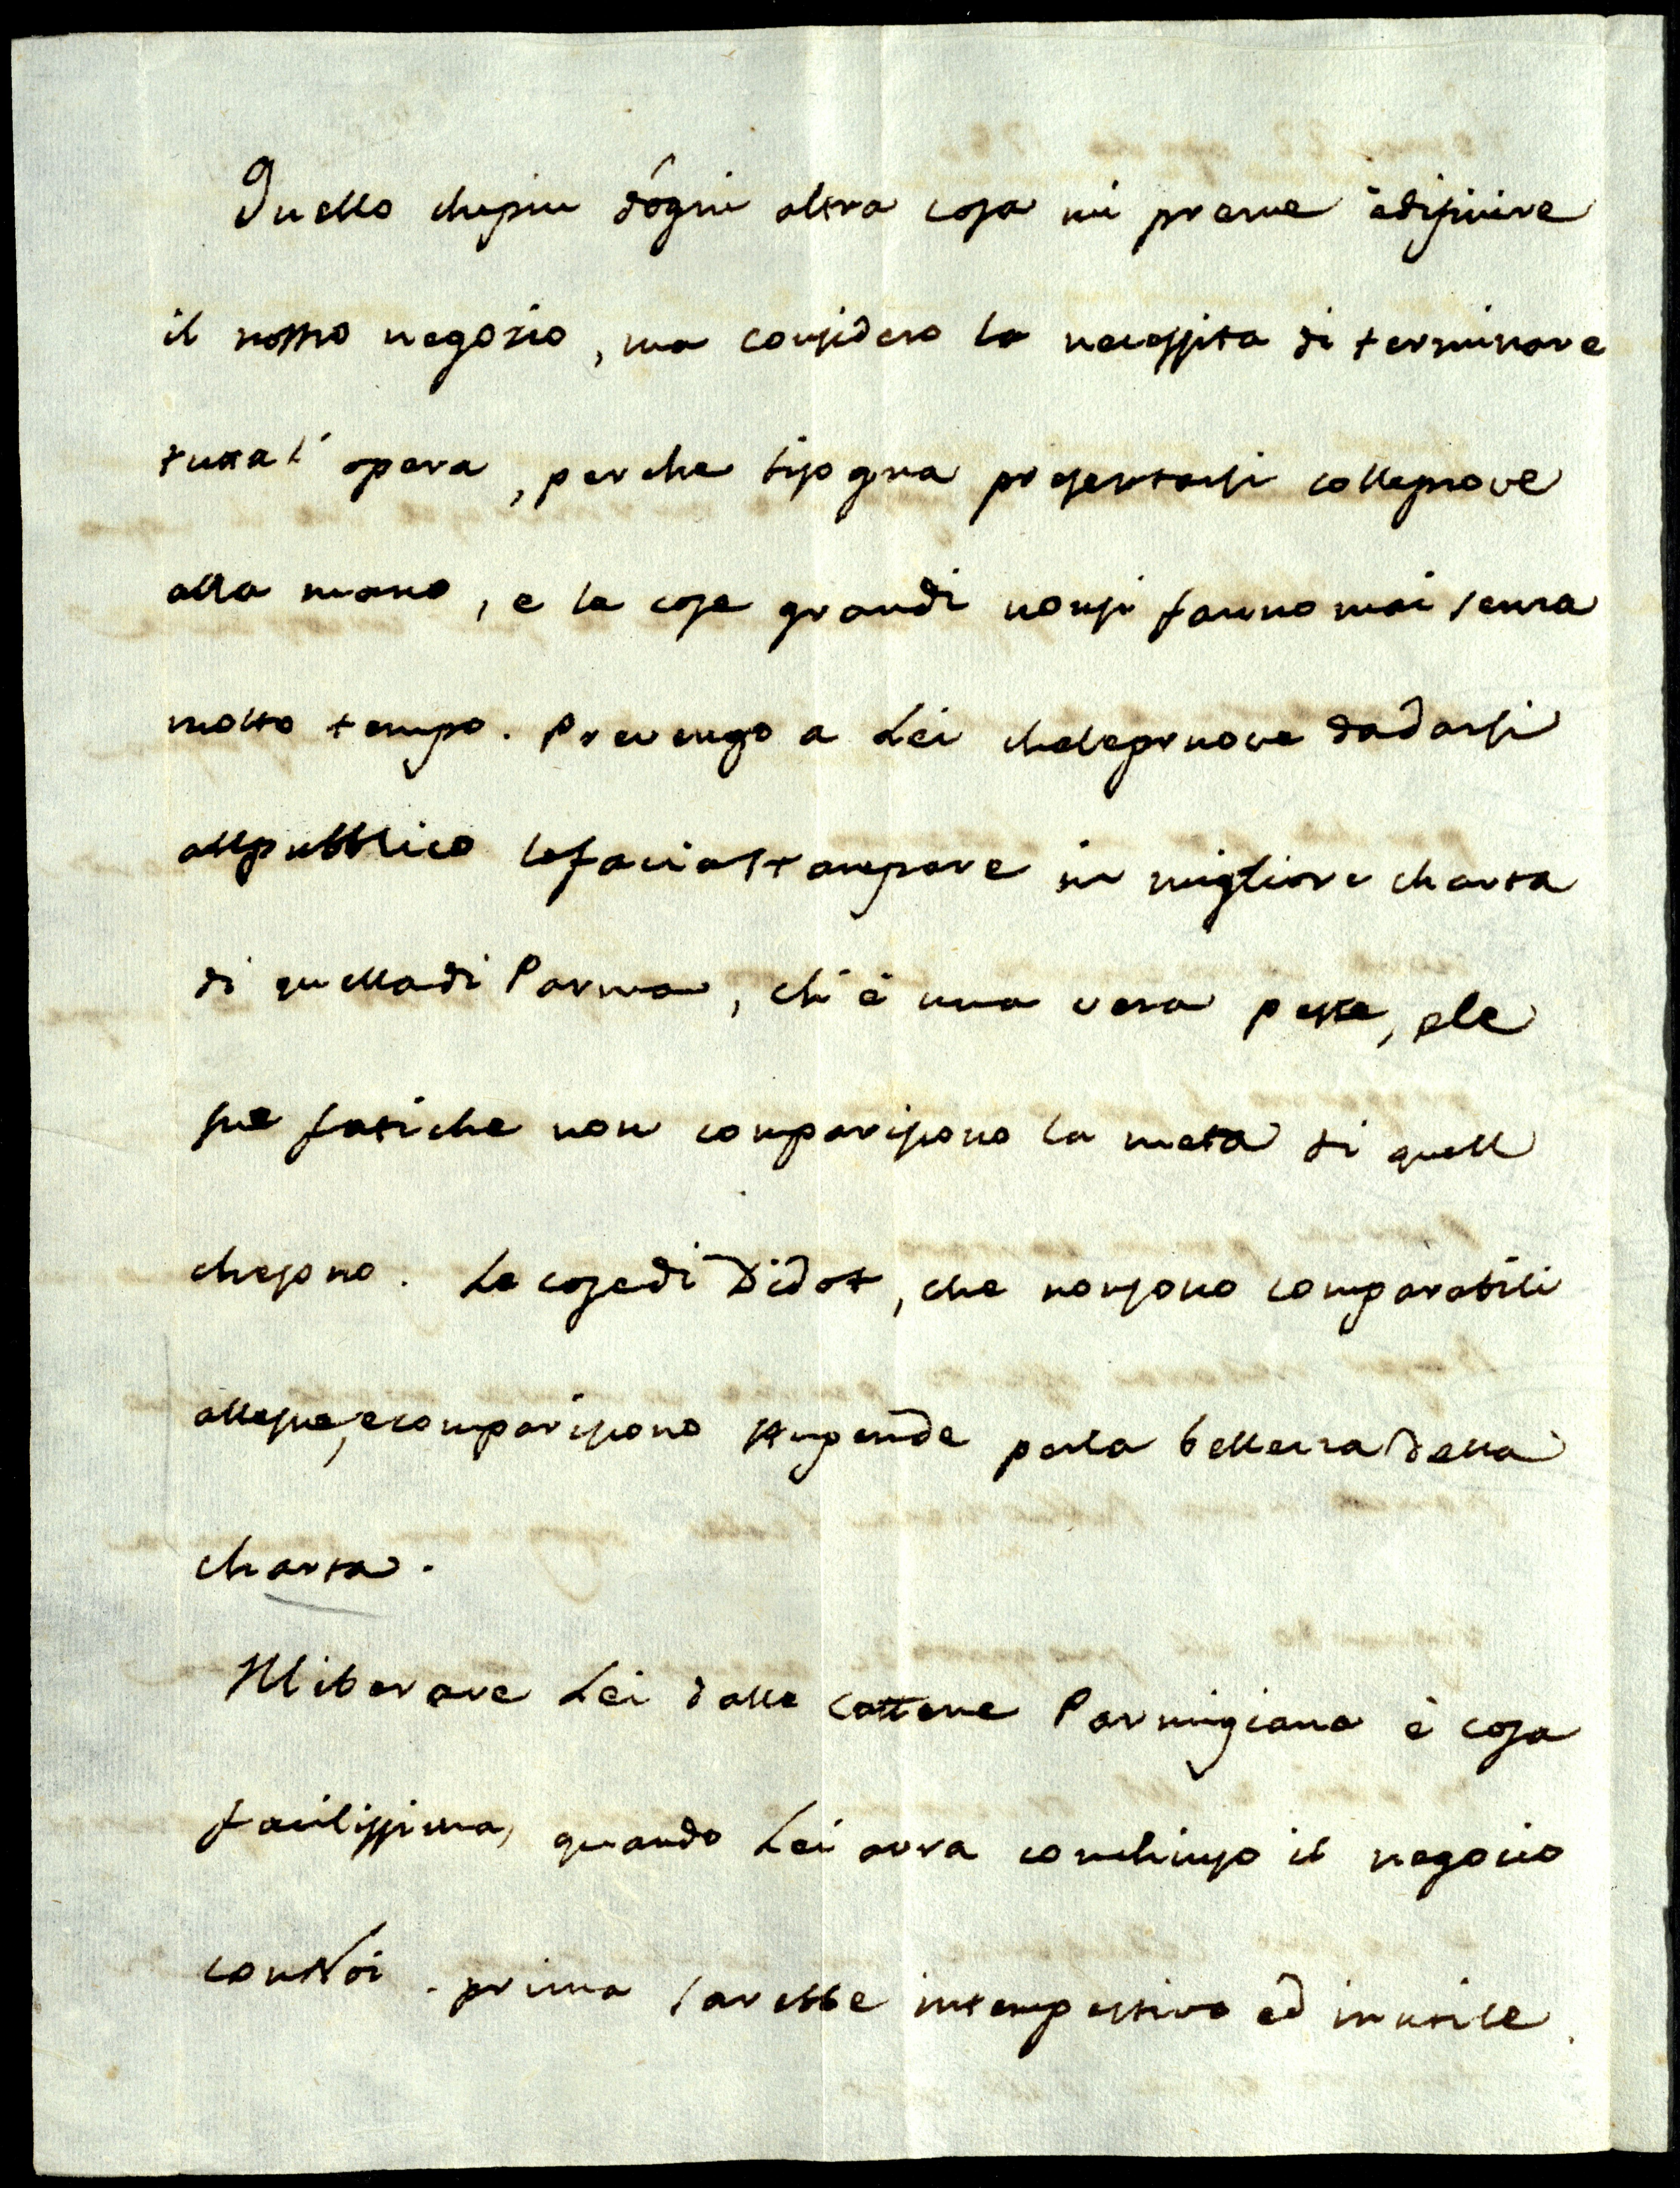 Quello chepiu d'ogni altra cosa mi preme è difinire
il nostro negozio, ma considero la necessita di terminare
tutta l'opera, perche bisogna presentarsi colleprove
alla mano, e le cose grandi nonsi fanno mai senza
molto tempo. Prevengo a Lei chelepruove dadarsi
allpubblico lefaciastampare in migliore charta
di quelladi Parma, ch'è una vera peste, ele
sue fatiche non compariscono la metà di quell
chesono. Le cosedi Didot, che nonsono comparabili
allesue, ecompariscono stupende perla bellezzadella
charta.
Illiberare Lei dalle cattene Parmigiane è cosa
facilissima, quando Lei avra conchiuso il negozio
conNoi. prima sarebbe intempestivo ed inutile.